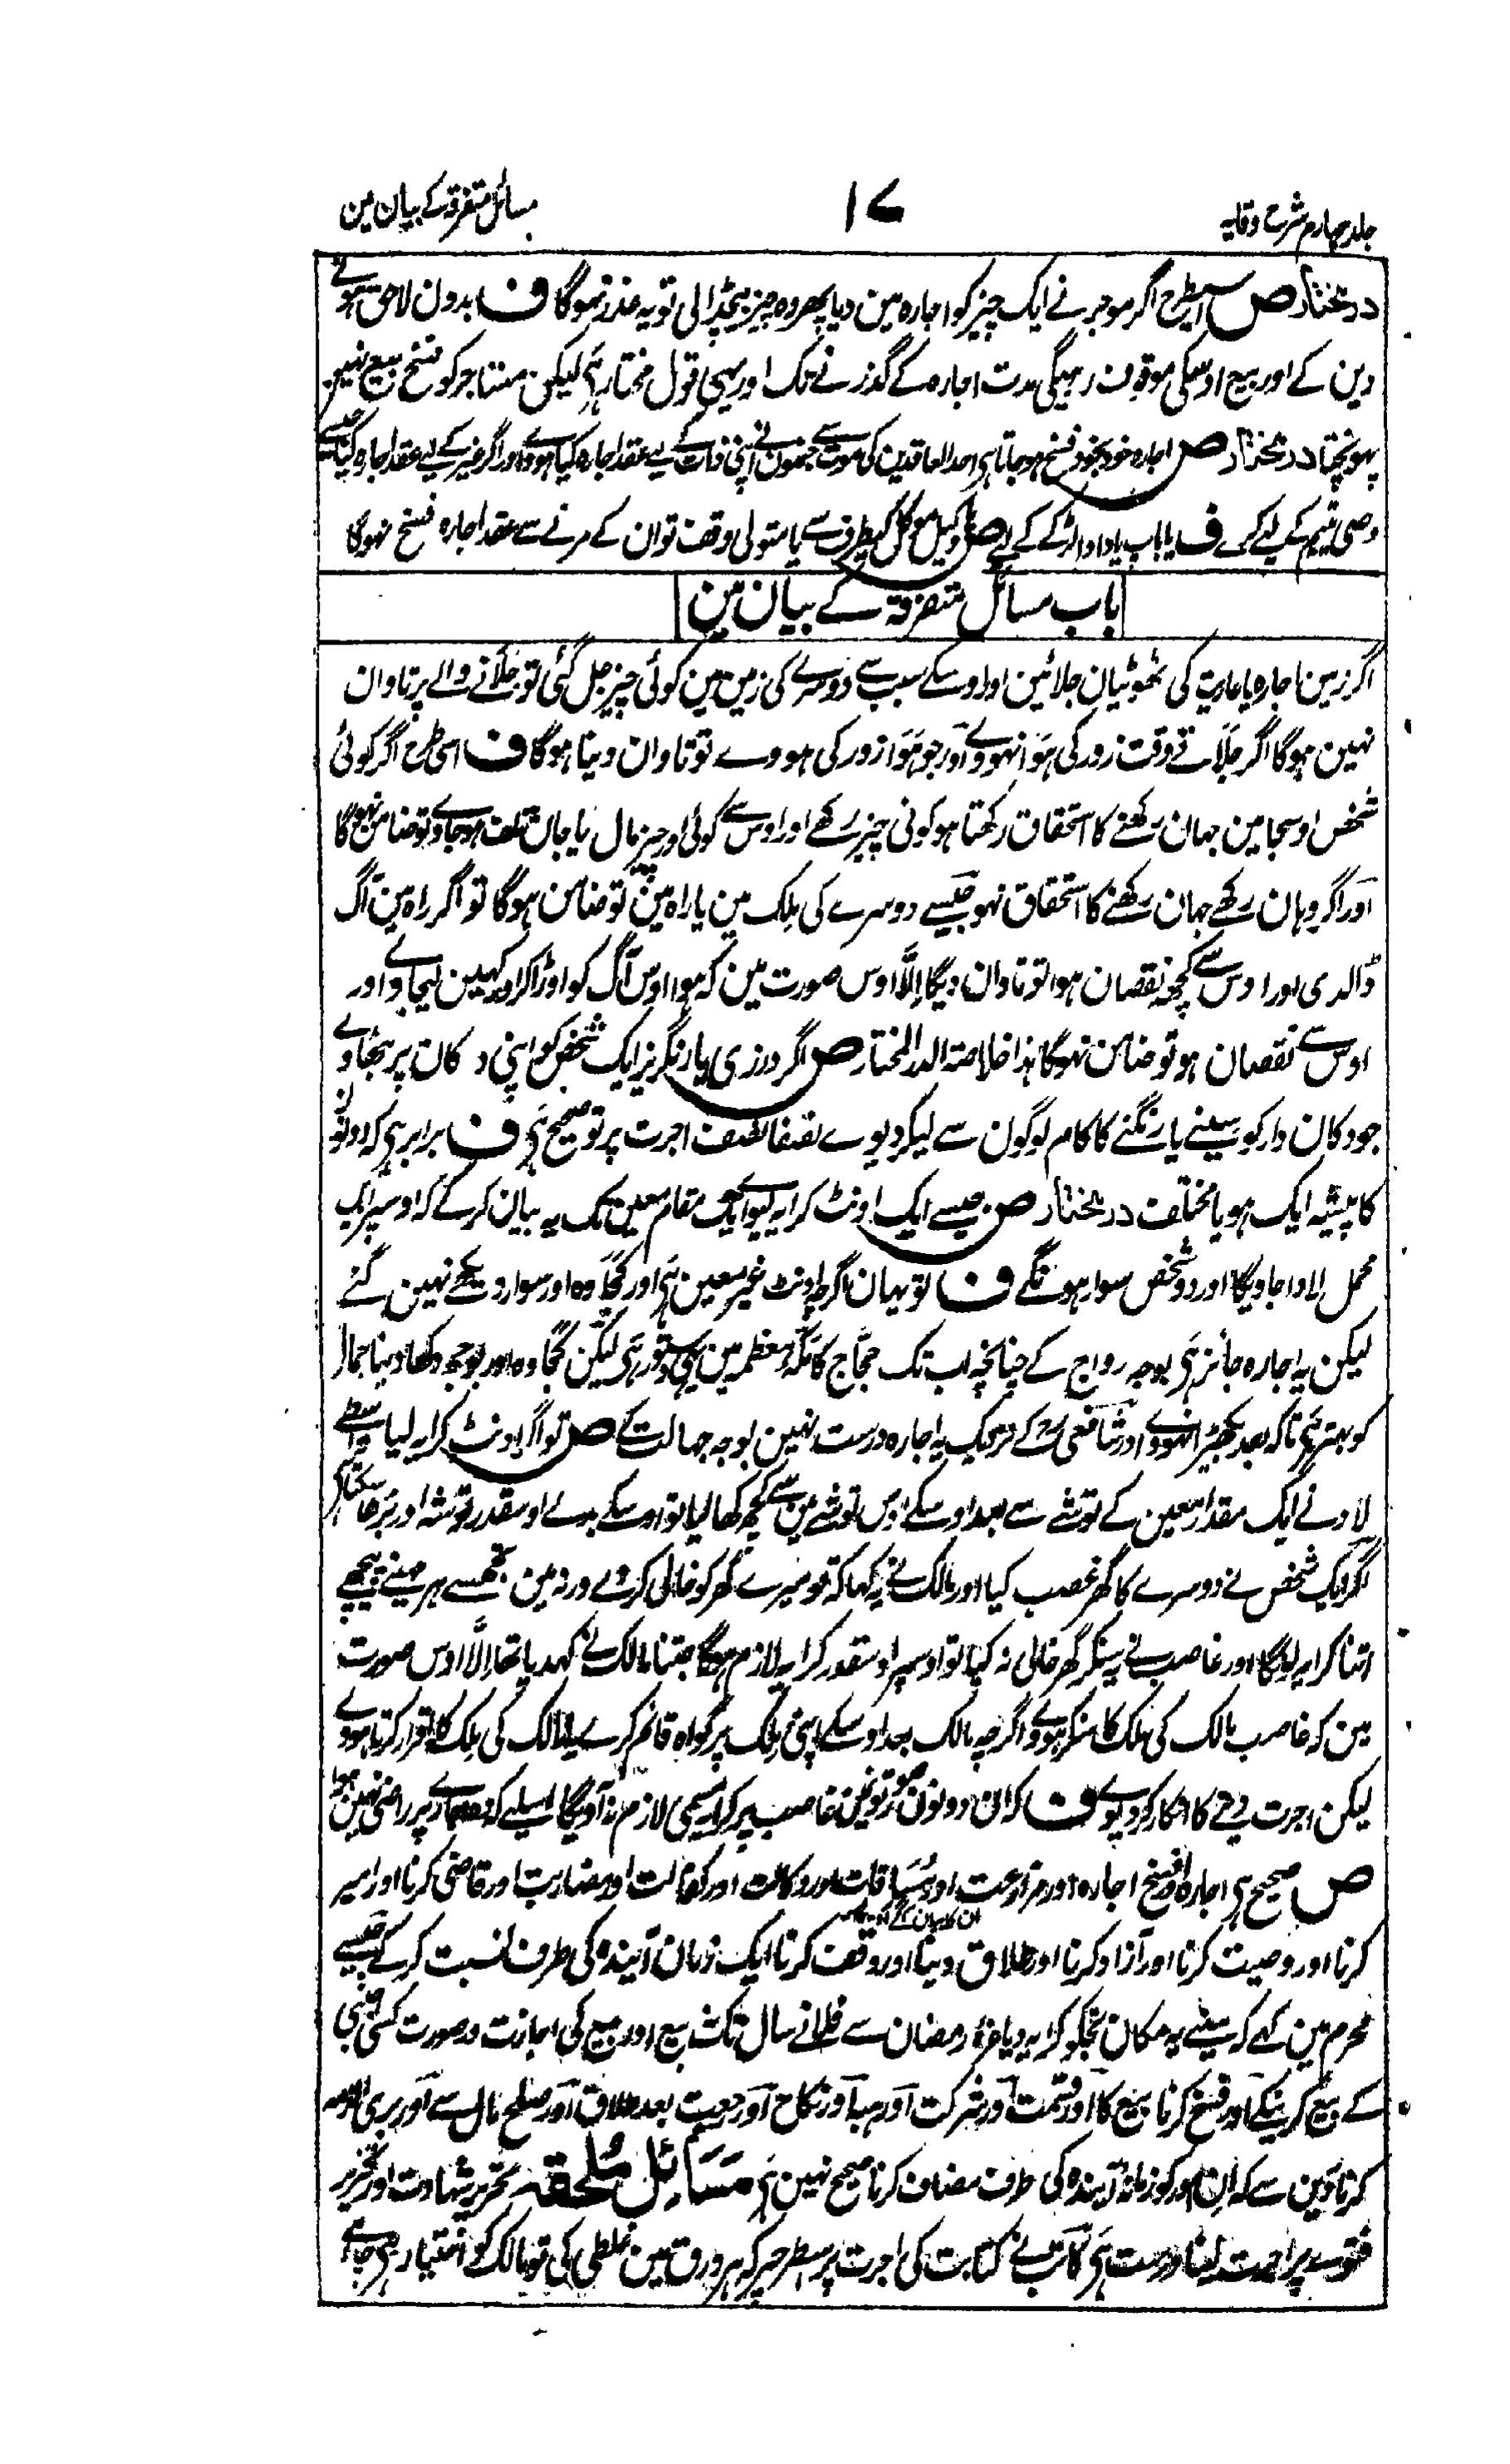 جلد چہارم شرح وقایہ
۱۷
مسائل متفرقہ کے بیان مین
درمختار ص اسیطرح اگر موجر نے ایک چیز کو اجارہ مین دیا پھر وہ چیز بیچڈالی تو یہ عذر نہوگا ف بدون لاحق ہونے
دین کے اور بیع اوسکی موقوف رہیگی مدت اجارہ کے گذرنے تک اور یہی قول مختار ہی لیکن مستاجر کو فسخ بیع نہین
پہونچتا درمختار ص اجارہ خود بخود فسخ ہوجاتا ہی احد العاقدین کی موت سے جنھون نے اپنی ذات کے لیے عقد اجارہ کیا ہووے اور اگر غیر کے لیے عقد اجارہ کیا جیسے
وصی یتیم کے لیے کرے ف یا باپ یا دادا لڑکے کے لیے ص یا وکیل موکل کیطرف سے یا متولی وقف تو ان کے مرنے سے عقد اجارہ فسخ نہوگا
باب مسائل متفرقہ کے بیان مین
اگر زمین اجارہ یا عاریت کی ٹھوٹیان جلائین اور اوسکے سبب سے دوسرے کی زمین مین کوئی چیز جل گئی تو جلانے والے پر تاوان
نہین ہوگا اگر جلاتے وقت زور کی ہوا نہووے اور جو ہوا زور کی ہووے تو تاوان دینا ہوگا ف اسی طرح اگر کوئی
شخص اوسجا مین جہان رکھنے کا استحقاق رکھتا ہو کوئی چیز رکھے اور اوس سے کوئی اور چیز مال یا جان تلف ہوجاوے تو ضامن نہوگا
اور اگر وہان رکھے جہان رکھنے کا استحقاق نہو جیسے دوسرے کی ملک مین یا راہ مین تو ضامن ہوگا تو اگر راہ مین آگ
ڈالدی اور اوس سے کچھ نقصان ہوا تو تاوان دیگا الّا اوس صورت مین کہ ہوا اوس آگ کو اوڑا کر اور کہین لیجاوے اور
اوس سے نقصان ہو تو ضامن نہوگا ہذا خلاصۃ الدر المختار ص اگر درزی یا رنگریز ایک شخص کو اپنی دکان پر بٹھاوے
جو دکان دار کو سینے یا رنگنے کا کام لوگون سے لیکر دیوے نصفا نصف اجرت پر تو صحیح ہی ف برابر ہی کہ دونون
کا پیشہ ایک ہو یا مختلف درمختار ص جیسے ایک اونٹ کرایہ لیوے ایک مقام معین تک یہ بیان کرکے کہ اوسپر ایک
محمل لادا جاویگا اور دو شخص سوار ہونگے ف تو یہان اگرچہ اونٹ غیر معین ہی اور کجاوہ اور سوار دیکھے نہین گئے
لیکن یہ اجارہ جائز ہی بوجہ رواج کے چنانچہ اب تک حجاج کا مکہ معظمہ مین یہی دستور ہی لیکن کجاوہ اور بوجھ دکھا دینا جمال
کو بہتر ہی تاکہ بعد بکھیڑا نہووے اور شافعی رح کے نزدیک یہ اجارہ درست نہین بوجہ جہالت کے ص تو اگر اونٹ کرایہ لیا واسطے
لادنے ایک مقدار معین کے توشے سے بعد اوسکے اوس توشے مین سے کچھ کھا لیا تو اوسکے بدلے اوسقدر توشہ اور بڑھا سکتا ہی
اگر ایک شخص نے دوسرے کا گھر غصب کیا اور مالک نے یہ کہا کہ تو میرے گھر کو خالی کردے ورنہ مین تجھسے ہر مہینے پیچھے
اتنا کرایہ لونگا اور غاصب نے یہ سنکر گھر خالی نہ کیا تو اوسپر اوسقدر کرایہ لازم ہوگا جتنا مالک نے کہدیا تھا الّا اوس صورت
مین کہ غاصب مالک کی ملک کا منکر ہووے اگرچہ مالک بعد اوسکے اپنی ملک پر گواہ قائم کرے یا مالک کی ملک کا اقرار کرتا ہووے
لیکن اجرت دینے کا انکار کردیوے ف کہ ان دونون صورتون مین غاصب پر کرایہ مسمی لازم نہ آویگا اسلیے کہ وہ اجارے پر راضی نہین ہوا
ص صحیح ہی اجارہ اور فسخ اجارہ اور مزارعت اور مساقات اور وکالت اور کفالت اور مضاربت اور قاضی کرنا اور امیر
کرنا اور وصیت کرنا اور آزاد کرنا اور طلاق دینا اور وقف کرنا ایک زمان آیندہ کی طرف نسبت کرکے جیسے
محرم مین کہے کہ مینے یہ مکان تجکو کرایہ دیا غرہ رمضان سے فلانے سال تک بیع اور بیع کی اجازت در صورت کسی اجنبی
کے بیع کرنیکے اور فسخ کرنا بیع کا اور قسمت اور شرکت اور ہبہ اور نکاح اور رجعت بعد طلاق اور صلح مال سے اور بری الذمہ
کرنا دین سے کہ ان امور کو زمانہ آیندہ کی طرف مضاف کرنا صحیح نہین ہی مسائل ملحقہ تحریر شہادت اور تحریر
فتوے پر اجرت لینا درست ہی کاتب نے کتابت کی اجرت پر اسطرح پر کہ ہر ورق مین غلطی کی تو مالک کو اختیار ہی چاہے